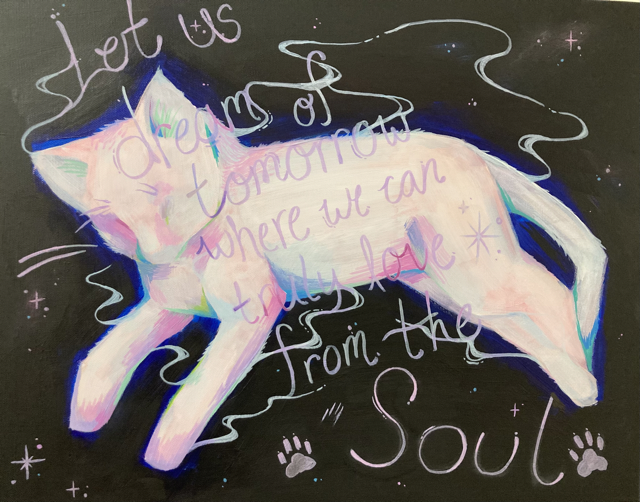 Let us
dream of
tomorrow
where we can
truly love
from the
Soul